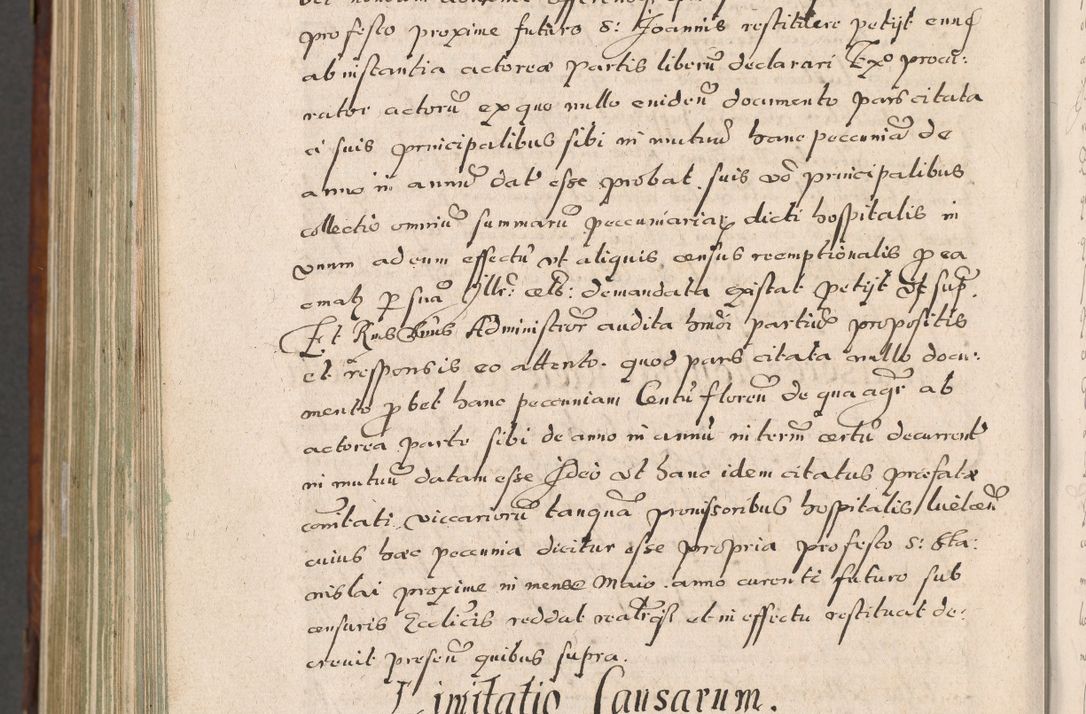 profesto proxime futuro S: Joannis restituere petijt eumq
ab instantia actoreæ partis liberũ declarari Exo procu:
rator actorũ ex quo nullo evidenti documento pars citata
a suis principalibus sibi in mutuũ hanc peccuniã de
anno in annũ dat esse probat suis võ principalibus
collectio omniũ summarũ peccuniariar dicti hospitalis in
unum ad eum effectũ ut aliquis census reemptionalis p ea
ematr p suã Illr: cels: demandata extat petijt ut sup.
Et Rndus Dnus Administror audita hmõi partiũ propositis
et responsis eo attento quod pars citata nullo docu:
mento pbet hanc peccuniam Centũ florenũ de qua agr ab
actorea parte sibi de anno in annũ in termĩ certũ decurrenť
in mutuũ datam esse Ideo ut hanc idem citatus præfatæ
comĩtati viccariorũ tanquã provisoribus hospitalis
cuius hæc peccunia dicitur esse propria profesto S: Sta:
nislai proxime in mense Maio anno curenti futuro sub
censuris Ecclĩcis reddat et in effectu restituat de:
crevit presenť quibus supra.
Limitatio Causarum.